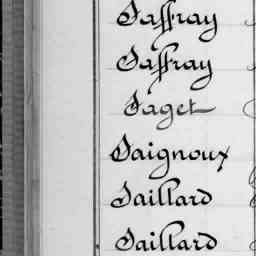 Saffray
Saffray
Saget
Saignoux
Saillard
Saillard